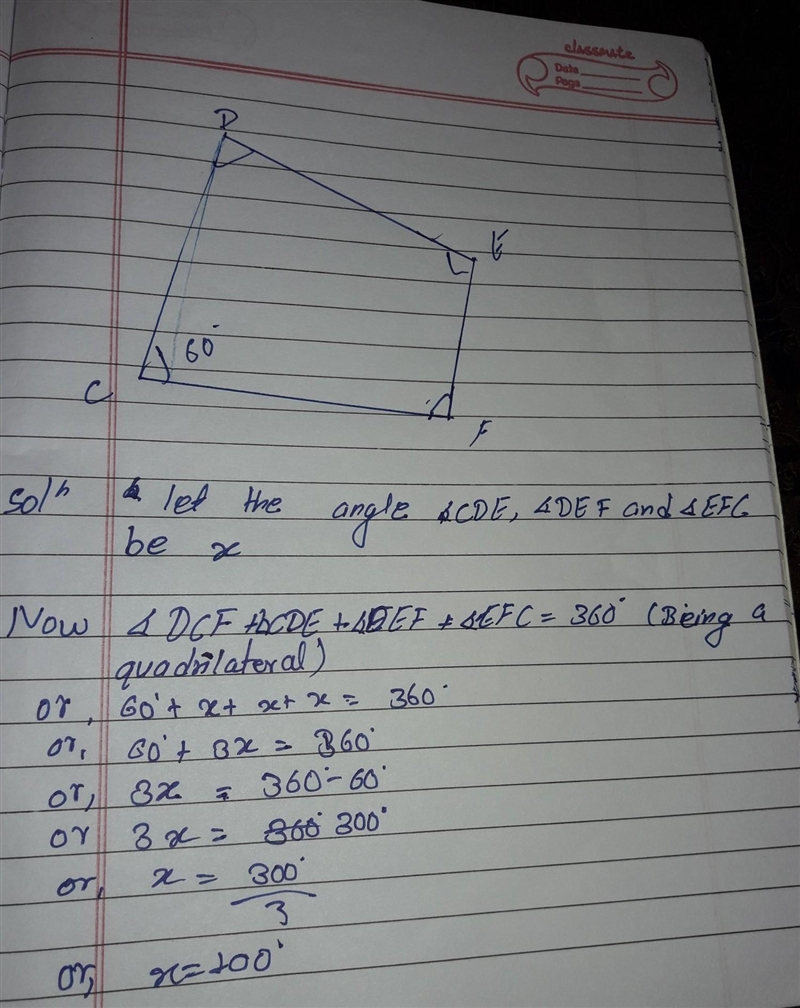 classmate
Date
Page
D
E
60°
C
F
Solⁿ let the angle ∠CDE, ∠DEF and ∠EFC
be x
Now ∠DCF + ∠CDE + ∠DEF + ∠EFC = 360° (Being a
quadrilateral)
or, 60° + x + x + x = 360°
or, 60° + 3x = 360°
or, 3x = 360° - 60°
or 3x = 300°
or, x = 300°/3
or, x = 100°